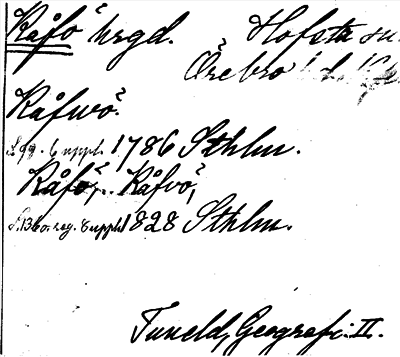 Kåfö hrgd. Hofsta sn.
Örebro
Kåfwö.
s. 99. 6 uppl. 1786 Sthlm.
Kåfö, Kåfvö,
s. 136 o. reg. 8 uppl. 1828 Sthlm.
Tuneld, Geografi. II.